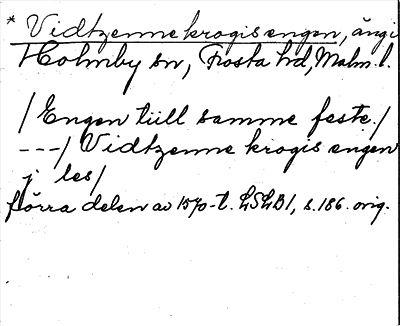 * Vidtzenne krogis engen, ängi
Holmby sn, Frosta hd, Malm. l.
/ Engen tiill samme feste. /
---/ Vidtzenne krogis engen
j les/
förra delen av 1570-t. LSLB1, s. 186. orig.